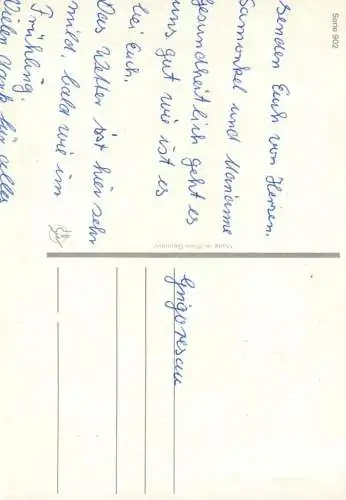 senden Euch von Herzen.
Samuukel und Marianne
gesundheitlich geht es
uns gut wie ist es
bei Euch.
Das Wetter ist hier sehr
mild, bald wie im
Frühling.
Vielen Dank für alles
Grigorescu
Serie 902